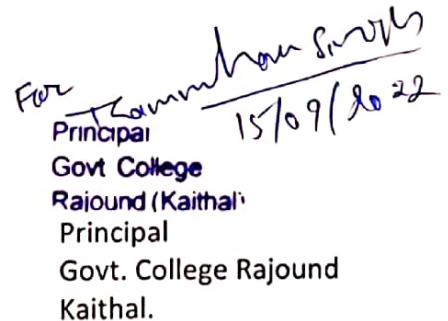 For
Singh
15/09/2022
Principal
Govt College
Rajound (Kaithal)
Principal
Govt. College Rajound
Kaithal.